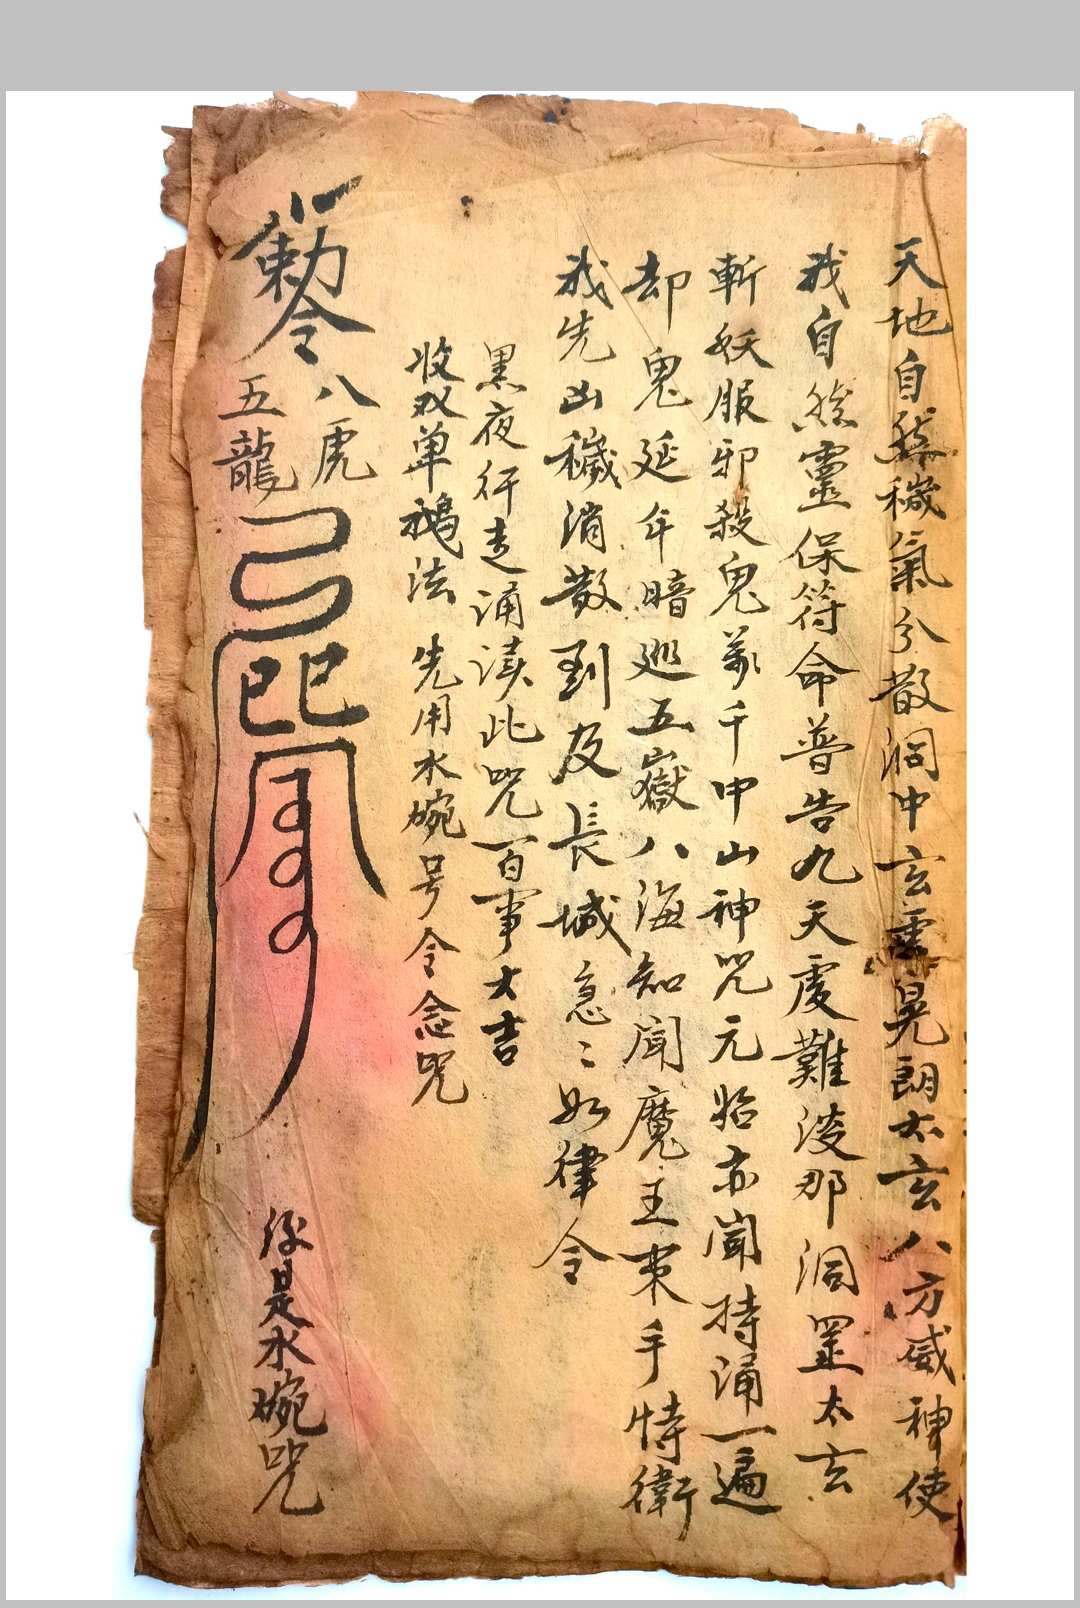 天地自然穢氣分散洞中玄虛晃朗太玄八方威神使
我自然靈保符命普告九天虔難淩那洞罡太玄
斬妖服邪殺鬼萬千中山神咒元始亦聞持涌一遍
却鬼延年暗巡五嶽八海知聞魔王束手恃衛
我先凶穢消散到及長城急〻如律令
黑夜行走涌读此咒一百事大吉
收双单鵝法 先用水碗号令念咒
勅令
八虎
五龍
後是水碗咒